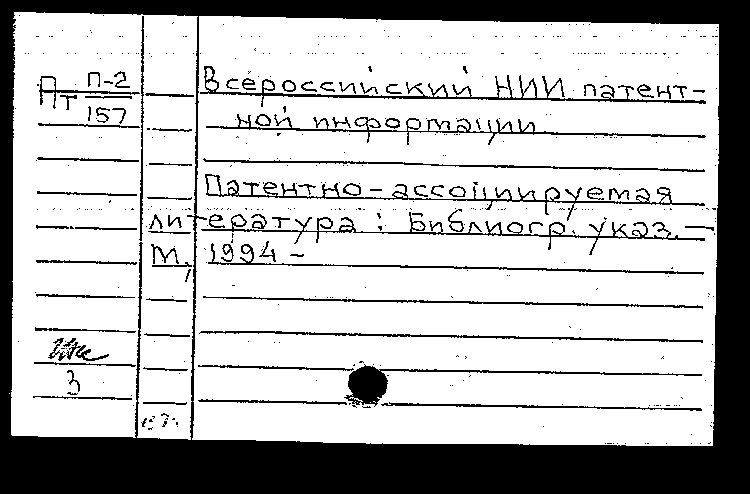 Пт П-2
157
Всероссийский НИИ патент-
ной информации
Патентно-ассоциируемая
литература : Библиогр. указ. —
М., 1994 -
3